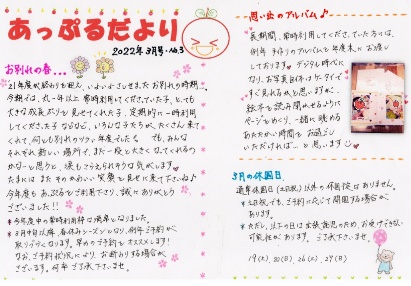 あっぷるだより
2022年3月号・No.3
お別れの春...
21年度が終わりを迎え、いよいよさしせまったお別れの時期。
今期では、丸一年以上常時利用してくださっていた子、とっても
大きな成長ぶりを見せてくれた子、定期的に一時利用
してくださる など、いろんな子たちが、たくさん来て
くれて、何しろ別れのツラい年度でした。でも、みんな
それぞれ新しい場所で、また一段と大きくなってくれるの
かなーと思うと、涙もこらえられそうな気がします。
たまには またそのかわいい笑顔を見せに来て下さいね♪
今年度も あっぷるをご利用下さり、誠にありがとう
ございました!!
*今年度中の常時利用枠は満席となりました。
*3月中旬以降 春休みシーズンとなり、例年ご予約が
取りづらくなります。早めのご予約をオススメします!
なお、ご予約状況により、お断りする場合が
ございます。何卒ご了承下さいませ。
思い出のアルバム♪
長期間、常時利用してくださっていた方には、
例年 手作りのアルバムを年度末にお渡し
しております♡デジタル時代に
なり、お写真自体はケータイで
すぐ見れるかと思いますが、
絵本を読み聞かせるように
ページをめくり、一緒に眺める
あたたかい時間を お過ごし
いただければ...と思います
3月の休園日
通常休園日(土日祝)以外の休園は、ありません。
*土日祝でも、ご予約に応じて開園する場合が
ございます。
*ただし、以下の日は出張託児のため、お受けできない
可能性があります。ご了承下さいませ。
19(土)、20(日)、26(土)、29(日)